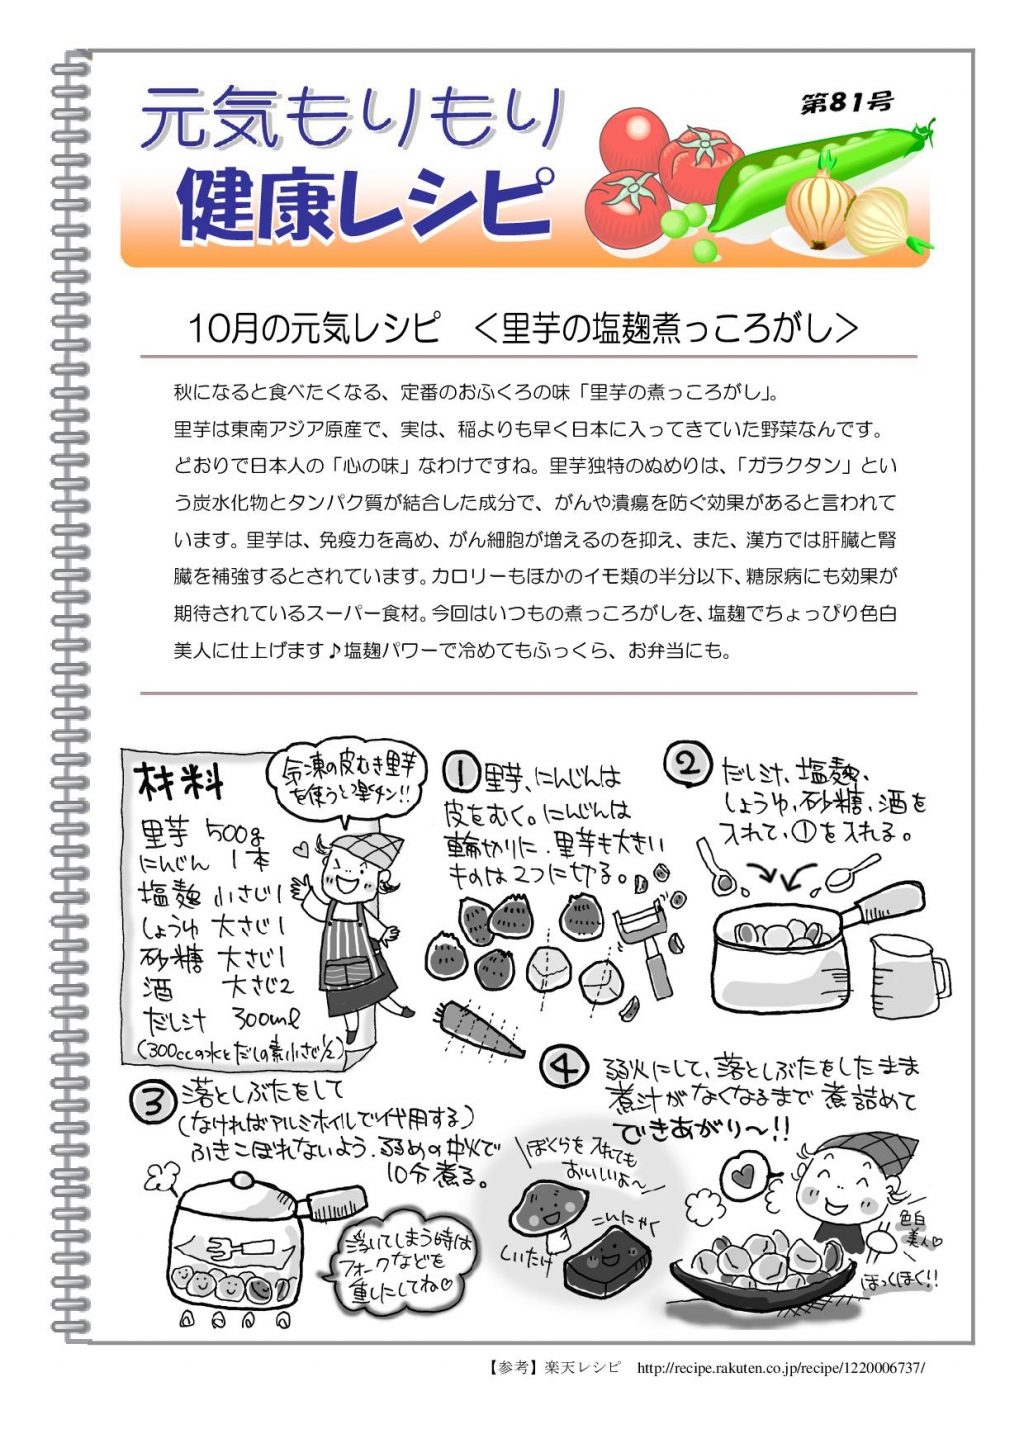 元気もりもり
健康レシピ
第81号
10月の元気レシピ ＜里芋の塩麹煮っころがし＞
秋になると食べたくなる、定番のおふくろの味「里芋の煮っころがし」。
里芋は東南アジア原産で、実は、稲よりも早く日本に入ってきていた野菜なんです。
どおりで日本人の「心の味」なわけですね。里芋独特のぬめりは、「ガラクタン」とい
う炭水化物とタンパク質が結合した成分で、がんや潰瘍を防ぐ効果があると言われて
います。里芋は、免疫力を高め、がん細胞が増えるのを抑え、また、漢方では肝臓と腎
臓を補強するとされています。カロリーもほかのイモ類の半分以下、糖尿病にも効果が
期待されているスーパー食材。今回はいつもの煮っころがしを、塩麹でちょっぴり色白
美人に仕上げます♪塩麹パワーで冷めてもふっくら、お弁当にも。
材料
里芋 500g
にんじん 1本
塩麹 小さじ1
しょうゆ 大さじ1
砂糖 大さじ1
酒 大さじ2
だし汁 300ml
(300ccの水とだしの素小さじ1/2)
冷凍の皮むき里芋
を使うと楽チン!!
① 里芋、にんじんは
皮をむく。にんじんは
輪切りに、里芋も大きい
ものは2つに切る。
② だし汁、塩麹、
しょうゆ、砂糖、酒を
入れて、①を入れる。
③ 落としぶたをして
(なければアルミホイルで代用する)
ふきこぼれないよう、弱めの中火で
10分煮る。
浮いてしまう時は
フォークなどを
重しにしてね♡
④ 弱火にして、落としぶたをしたまま
煮汁がなくなるまで煮詰めて
できあがり〜!!
ぼくらを入れても
おいしいよ〜
しいたけ
こんにゃく
色白
美人♡
ほっくほく!!
【参考】楽天レシピ http://recipe.rakuten.co.jp/recipe/1220006737/